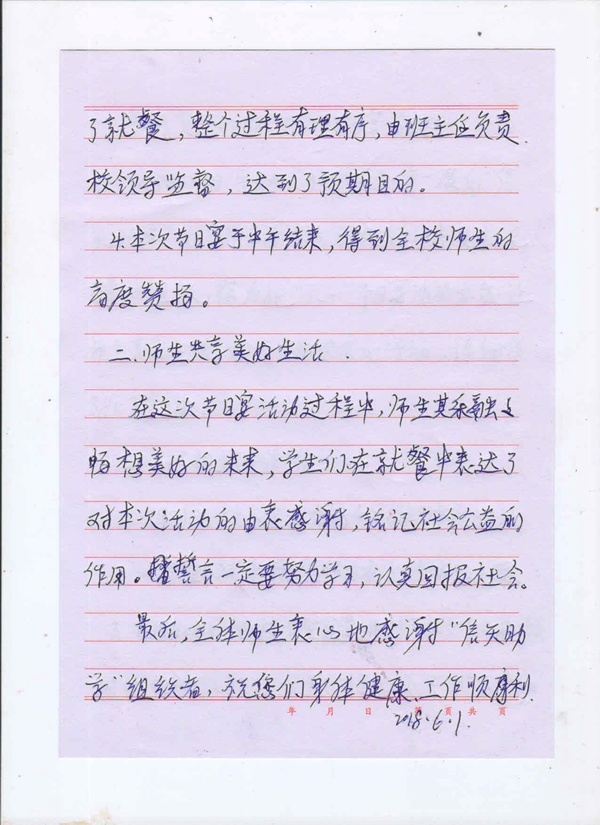 了就餐，整个过程有理有序，由班主任负责.
校领导监督，达到了预期目的。
4.本次节日宴于中午结束，得到全校师生的
高度赞扬。
二.师生共享美好生活.
在这次节日宴活动过程中，师生其乐融々
畅想美好的未来，学生们在就餐中表达了
对本次活动的由衷感谢，铭记社会公益的
作用。誓言一定要努力学习，认真回报社会。
最后，全体师生衷心地感谢“信天助
学”组织者，祝您们身体健康.工作顺利.
年 月 日 第 页 共 页
2018.6.1.